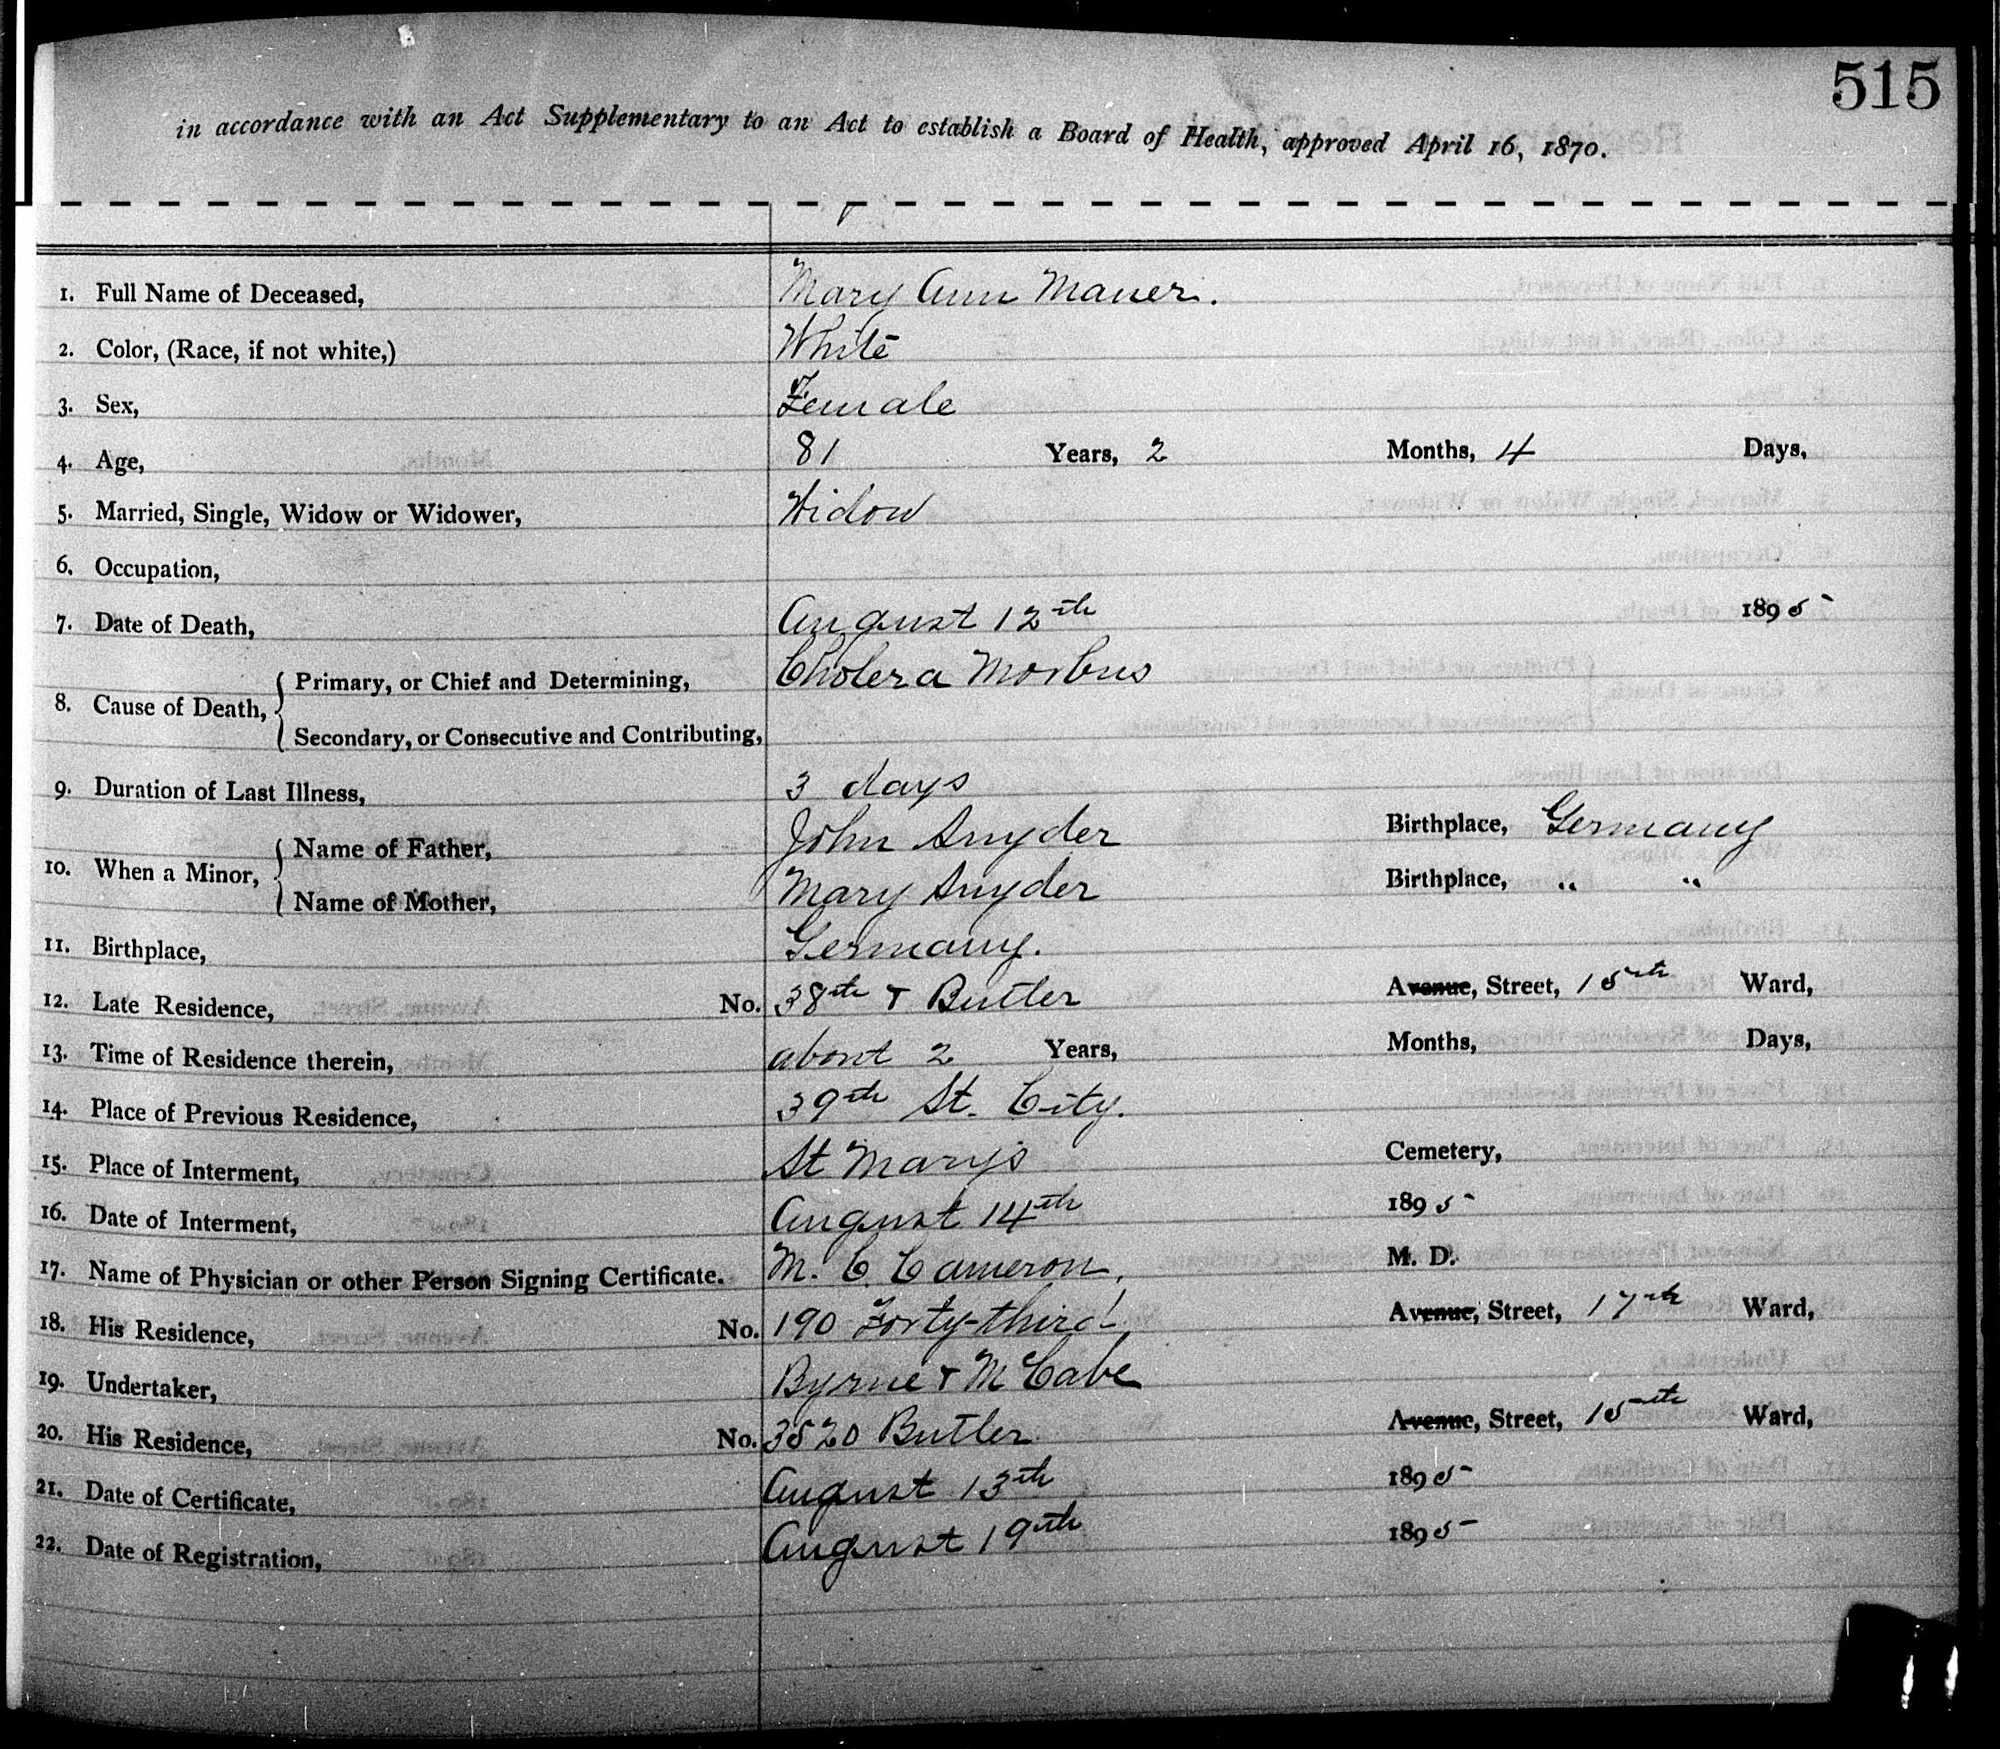 515
in accordance with an Act Supplementary to an Act to establish a Board of Health, approved April 16, 1870.
1. Full Name of Deceased, Mary Ann Maner.
2. Color, (Race, if not white,) White
3. Sex, Female
4. Age, 81 Years, 2 Months, 4 Days,
5. Married, Single, Widow or Widower, Widow
6. Occupation,
7. Date of Death, August 12th 1895
8. Cause of Death, { Primary, or Chief and Determining, Cholera Morbus
Secondary, or Consecutive and Contributing,
9. Duration of Last Illness, 3 days
10. When a Minor, { Name of Father, John Snyder Birthplace, Germany
Name of Mother, Mary Snyder Birthplace, " "
11. Birthplace, Germany.
12. Late Residence, No. 38th & Butler Avenue, Street, 15th Ward,
13. Time of Residence therein, about 2 Years, Months, Days,
14. Place of Previous Residence, 39th St. City.
15. Place of Interment, St Marys Cemetery,
16. Date of Interment, August 14th 1895
17. Name of Physician or other Person Signing Certificate. M. C. Cameron, M. D.
18. His Residence, No. 190 Forty-third Avenue, Street, 17th Ward,
19. Undertaker, Byrne & McCabe
20. His Residence, No. 3520 Butler Avenue, Street, 15th Ward,
21. Date of Certificate, August 13th 1895
22. Date of Registration, August 19th 1895